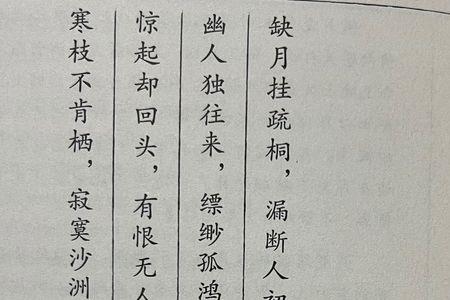 缺月挂疏桐，漏断人初
幽人独往来，缥缈孤鸿
惊起却回头，有恨无人
寒枝不肯栖，寂寞沙洲